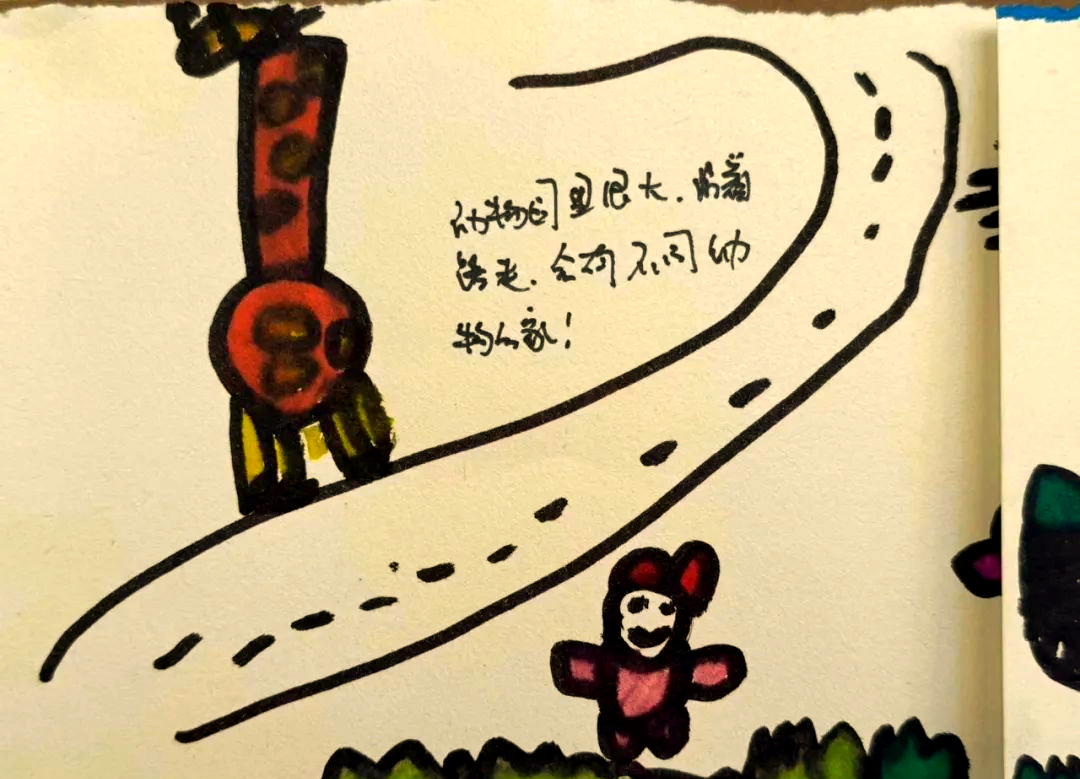 动物园里很大.顺着
路走.会有不同动
物的家!